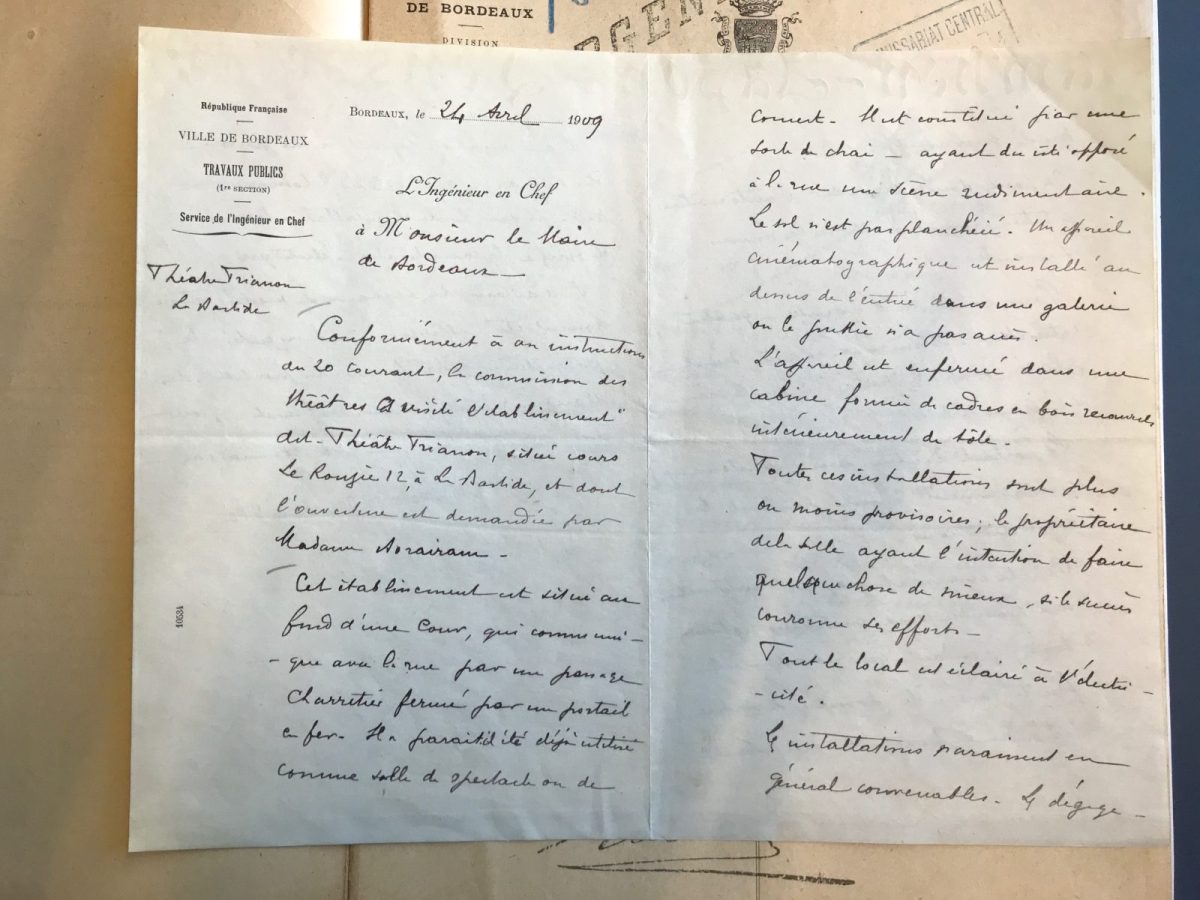 DE BORDEAUX
DIVISION
URGENT
COMMISSARIAT CENTRAL
République Française
VILLE DE BORDEAUX
TRAVAUX PUBLICS
(1re SECTION)
Service de l'Ingénieur en Chef
Théâtre Trianon
La Bastide
10534
BORDEAUX, le 24 Avril 1909
L'Ingénieur en Chef
à Monsieur le Maire
de Bordeaux —
Conformément à vos instructions
du 20 courant, la commission des
théâtres a visité l'établissement
dit - Théâtre Trianon, situé cours
Le Rouzic 12, à La Bastide, et dont
l'ouverture est demandée par
Madame
Cet établissement est situé au
fond d'une Cour, qui communi -
- que avec la rue par un passage
Charretier fermé par un portail
en fer. Il a été déjà utilisé
comme salle de spectacle ou de
concert. Il est constitué par une
sorte de chai — ayant du côté opposé
à la rue une scène rudimentaire.
Le sol n'est pas planchéié. Un appareil
cinématographique est installé au
dessus de l'entrée dans une galerie
où le public n'a pas accès.
L'appareil est enfermé dans une
cabine formée de cadres en bois recouverts
intérieurement de tôle.
Toutes ces installations sont plus
ou moins provisoires ; le propriétaire
de la salle ayant l'intention de faire
quelque chose de mieux, si le succès
couronne ses efforts —
Tout le local est éclairé à l'électri -
- cité.
Les installations paraissent en
général convenables. Les dégage -